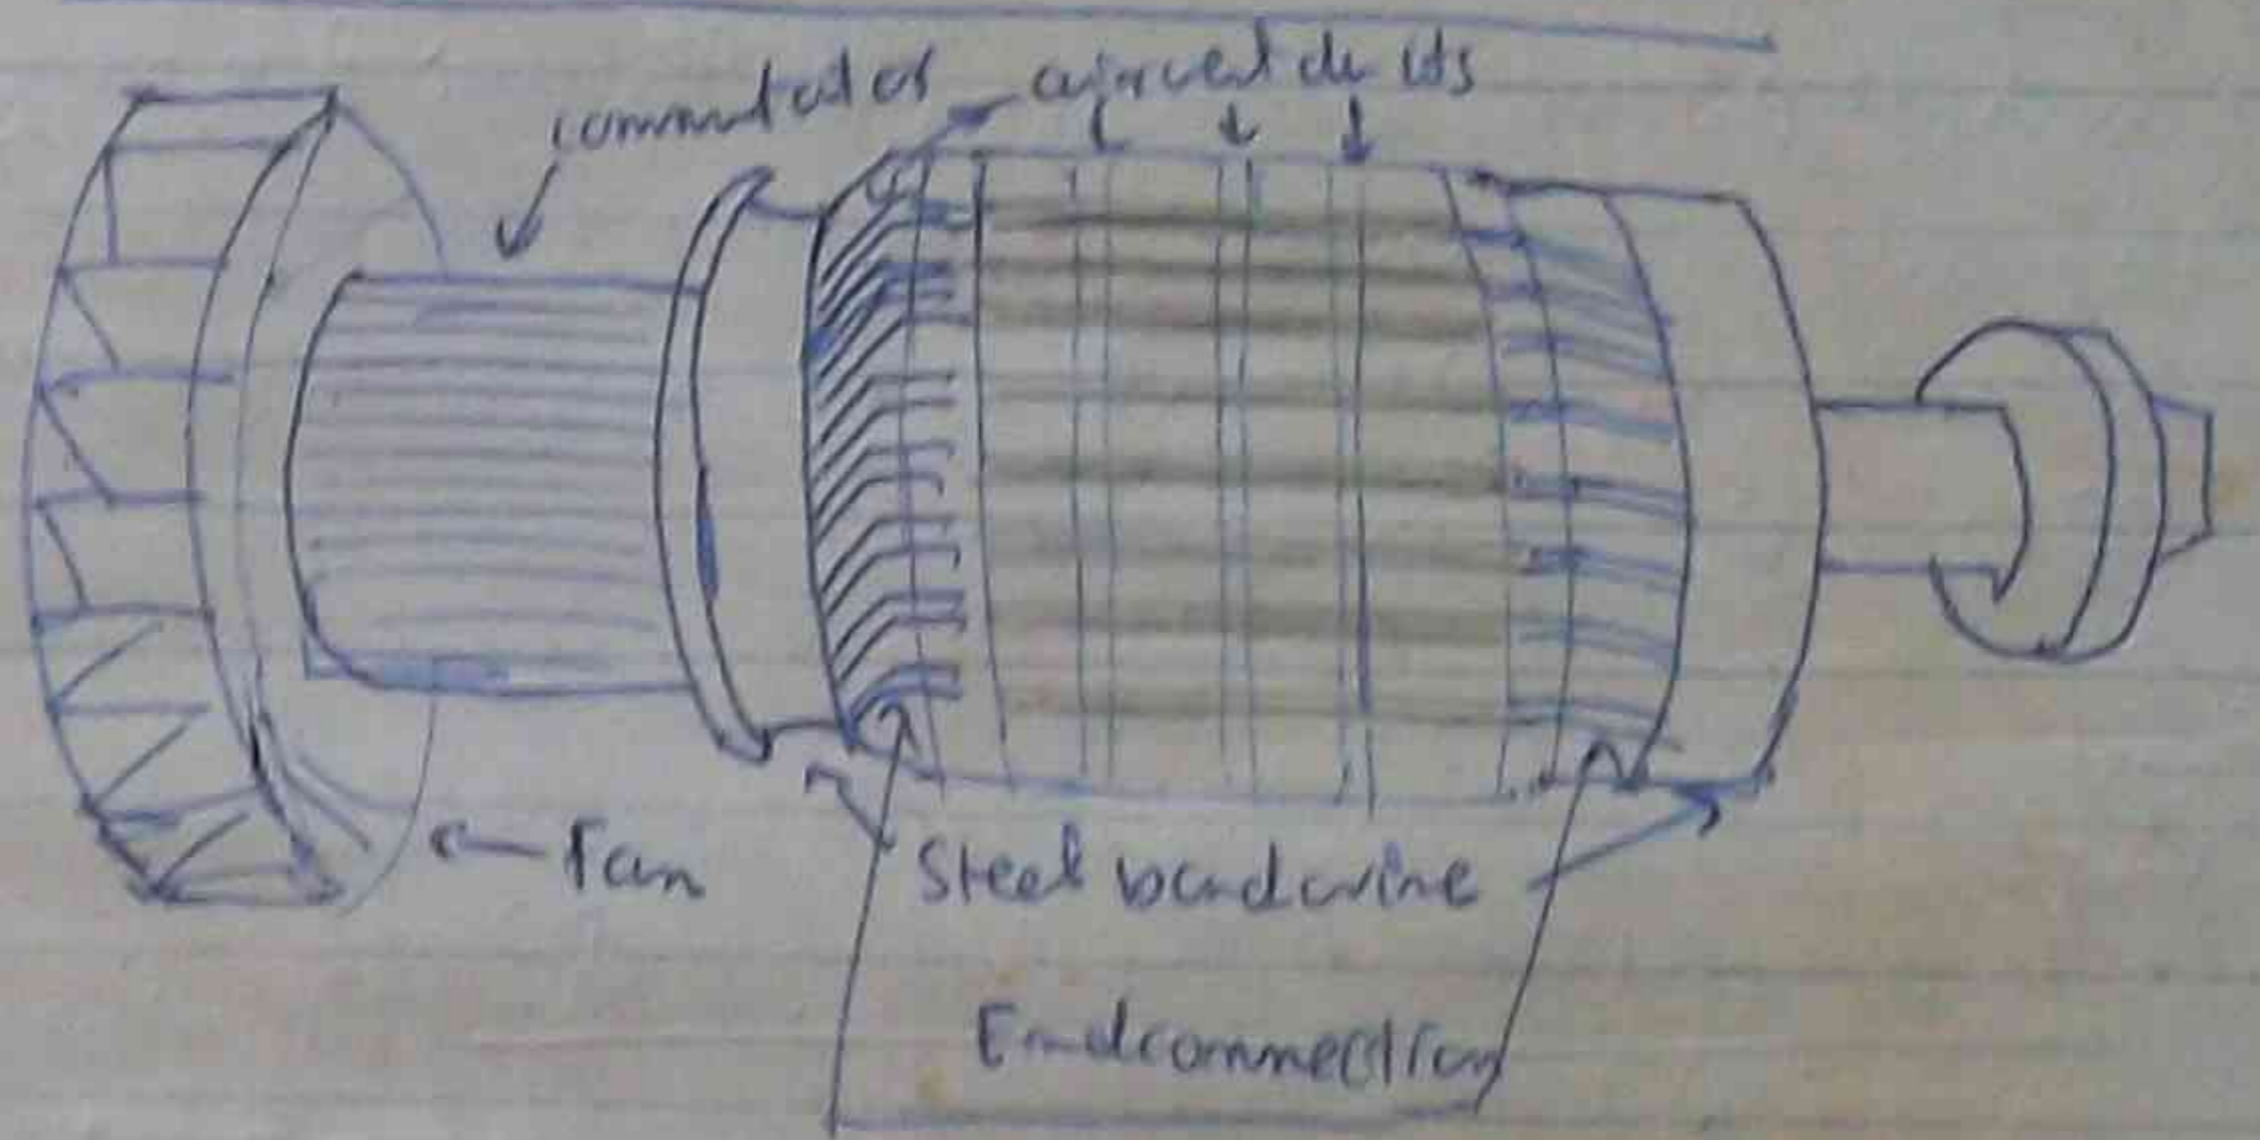 commutator
air vent ducts
Fan
Steel band wire
End connection